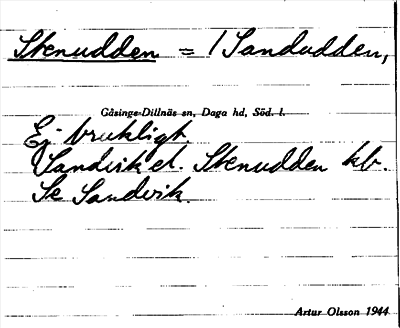 Stenudden = / Sandudden,
Gåsinge-Dillnäs sn, Daga hd, Söd. l.
Ej brukligt.
Sandvik el. Stenudden kb.
Se Sandvik.
Artur Olsson 1944